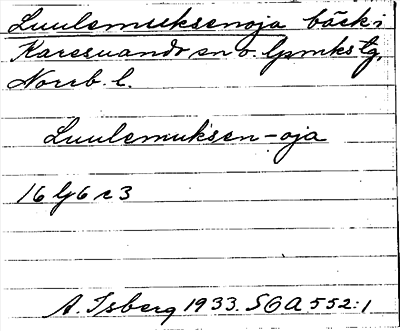 Luulemuksenoja bäck i
Karesuando sn o. lpmkstg,
Norrb. l.
Luulemuksen-oja
16 Yj 6 c 3
A. Isberg 1933. SOA 552:1